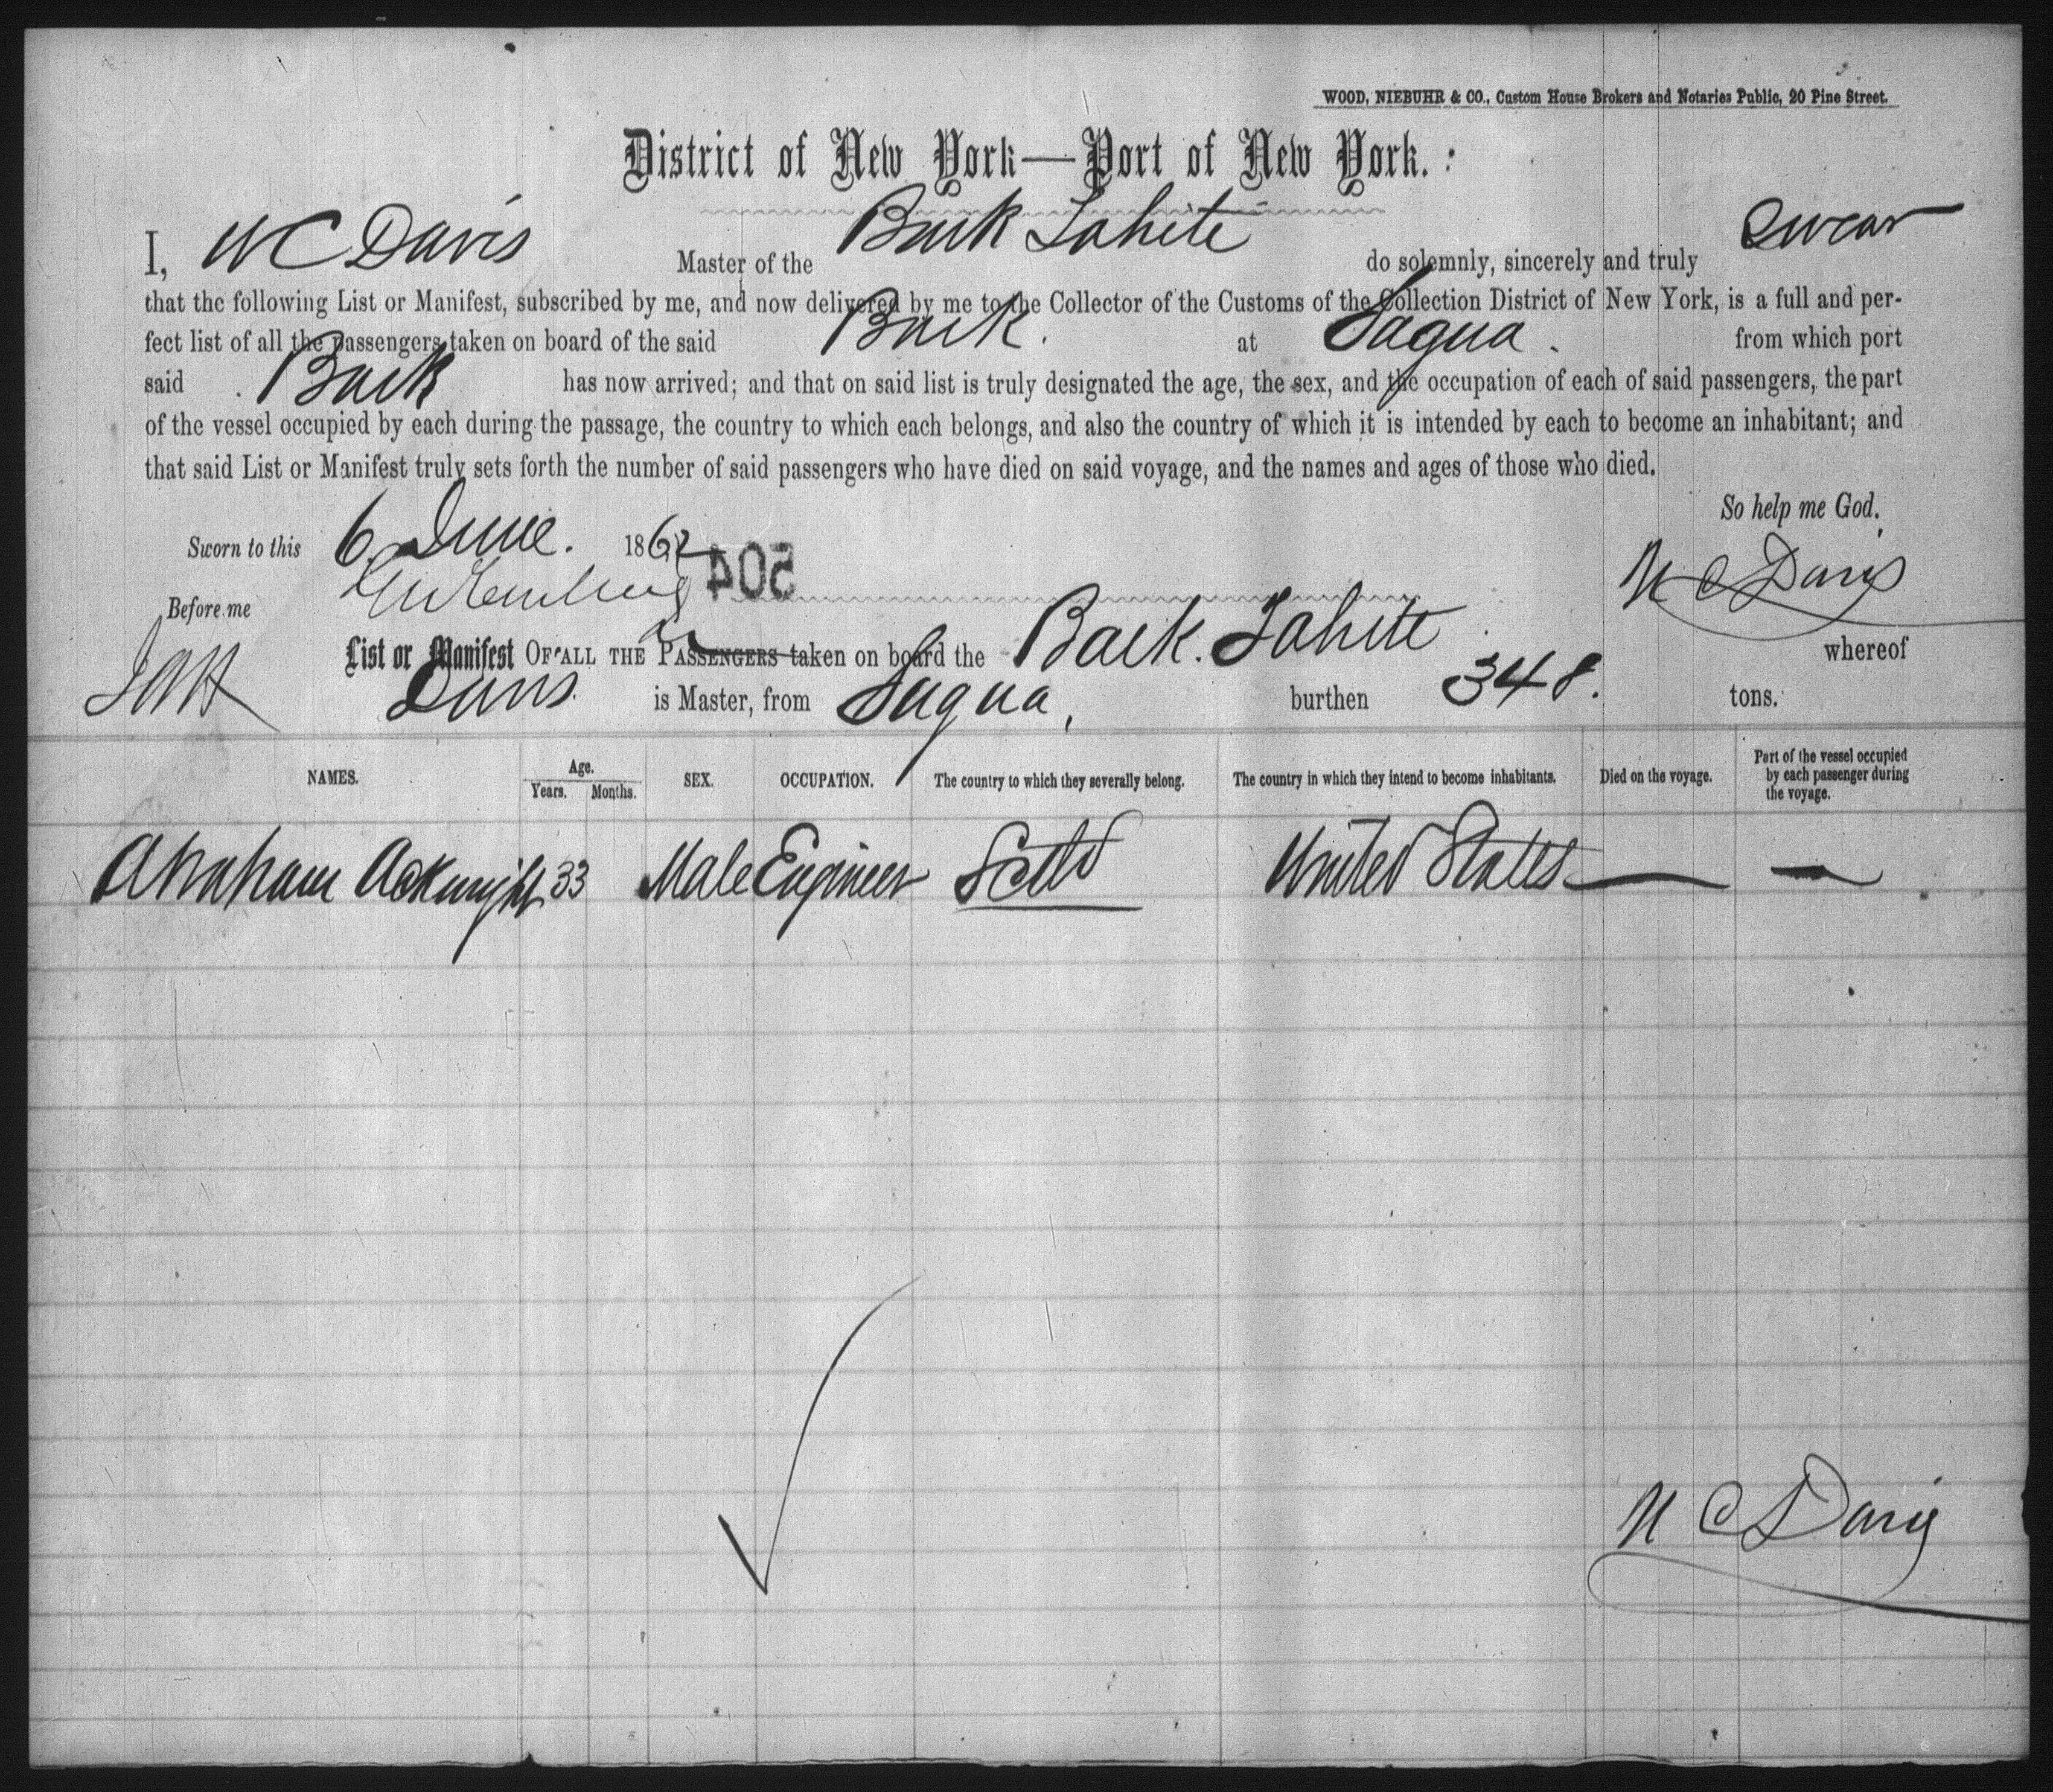 WOOD, NIEBUHR & CO., Custom House Brokers and Notaries Public, 20 Pine Street.
District of New York—Port of New York. :
I, W C Davis Master of the Bark Tahite do solemnly, sincerely and truly Swear
that the following List or Manifest, subscribed by me, and now delivered by me to the Collector of the Customs of the Collection District of New York, is a full and per-
fect list of all the passengers taken on board of the said Bark. at Sagua. from which port
said Bark has now arrived; and that on said list is truly designated the age, the sex, and the occupation of each of said passengers, the part
of the vessel occupied by each during the passage, the country to which each belongs, and also the country of which it is intended by each to become an inhabitant; and
that said List or Manifest truly sets forth the number of said passengers who have died on said voyage, and the names and ages of those who died.
So help me God.
Sworn to this 6 June. 1862
504
Before me
W C Davis
List or Manifest OF ALL THE PASSENGERS taken on board the Bark. Tahite whereof
Davis is Master, from Sagua, burthen 348. tons.
NAMES. Age. Years. Months. SEX. OCCUPATION. The country to which they severally belong. The country in which they intend to become inhabitants. Died on the voyage. Part of the vessel occupied by each passenger during the voyage.
Abraham Ackwright 33 Male Engineer Scotld United States — —
W C Davis